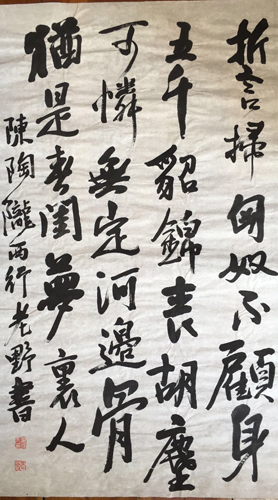 折言掃匈奴不顧身
五千貂錦喪胡塵
可憐無定河邊骨
猶是春閨夢裏人
陳陶隴西行老野書